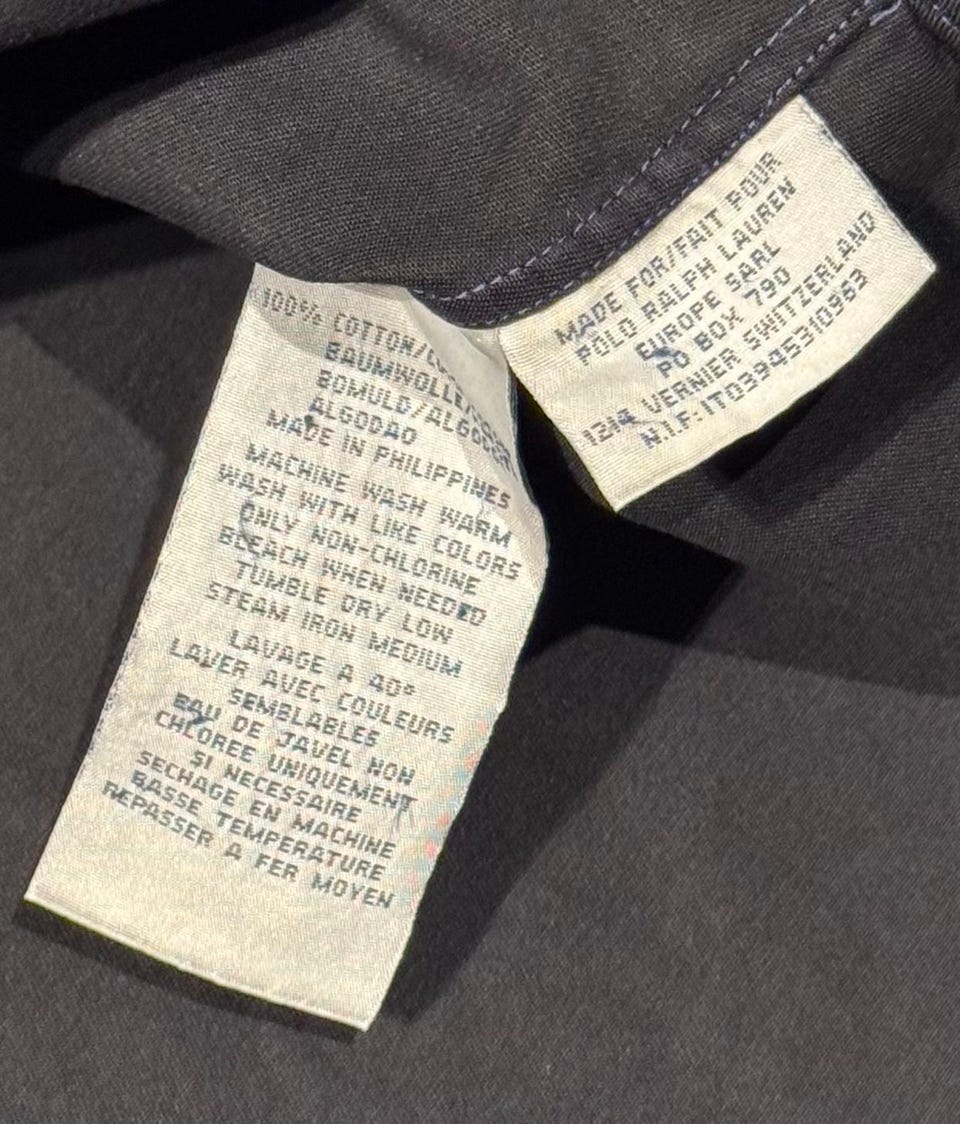 100% COTTON/
BAUMWOLLE/
BOMULD/ALGODON
ALGODAO
MADE IN PHILIPPINES
MACHINE WASH WARM
WASH WITH LIKE COLORS
ONLY NON-CHLORINE
BLEACH WHEN NEEDED
TUMBLE DRY LOW
STEAM IRON MEDIUM
LAVAGE A 40°
LAVER AVEC COULEURS
SEMBLABLES
EAU DE JAVEL NON
CHLOREE UNIQUEMENT
SI NECESSAIRE
SECHAGE EN MACHINE
BASSE TEMPERATURE
REPASSER A FER MOYEN
MADE FOR/FAIT POUR
POLO RALPH LAUREN
EUROPE SARL
PO BOX 790
1214 VERNIER SWITZERLAND
N.I.F:IT03945310963